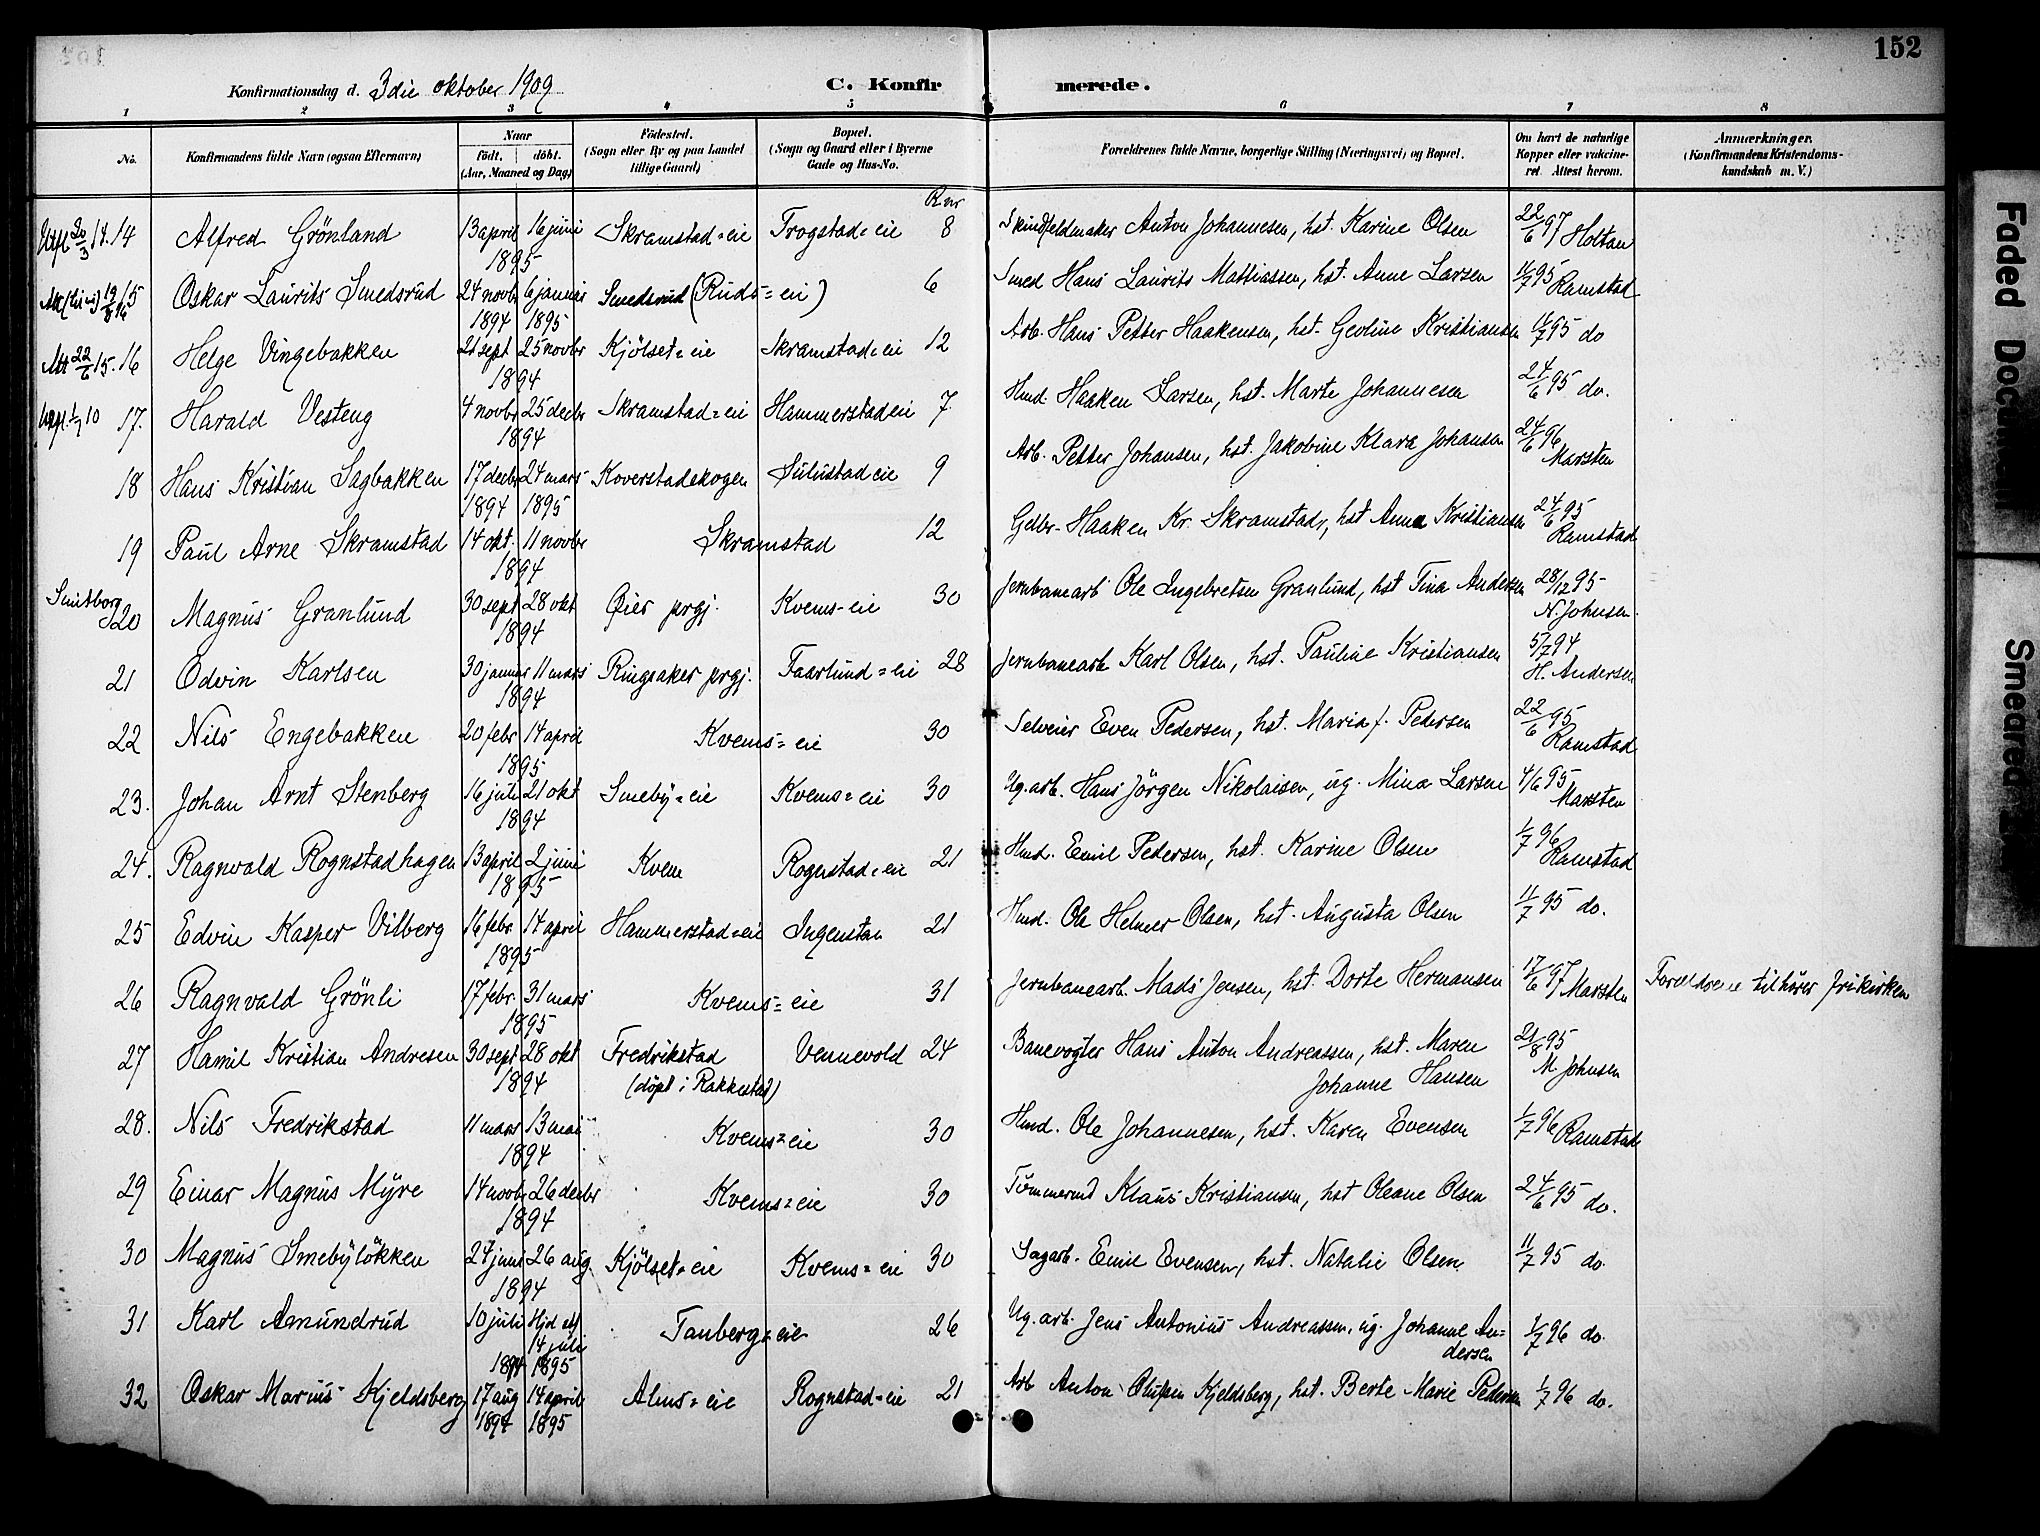 152
Konfirmationsdag d. 3die oktober 1909
C. Konfirmerede.
1 2 3 4 5 6 7 8
No.
Konfirmandens fulde Navn (ogsaa Efternavn)
Naar
födt. döbt.
(Aar, Maaned og Dag)
Födested.
(Sogn eller By og paa Landet
tillige Gaard)
Bopæl.
(Sogn og Gaard eller i Byerne
Gade og Hus-No.
Forældrenes fulde Navne, borgerlige Stilling (Næringsvei) og Bopæl.
Om havt de naturlige
Kopper eller vaksine-
ret. Attest herom.
Anmærkninger.
(Konfirmandens Kristendoms-
kundskab m. V.)
R nr
20/3 14. 14 Alfred Grönland 13 april 16 juni 1895 Skramstad=eie Trogstad=eie 8 Skindfeldmaker Anton Johannesen, hst. Karine Olsen 22/6 97 Holtan
19/8 16 15 Oskar Laurits Smedsrud 24 novbr 1894 6 januar 1895 Smedsrud (Ruds=eie) 6 Smed Hans Laurits Mathiassen, hst. Anne Larsen 11/7 95 Ramstad
Att 22/6 15. 16 Helge Vingebakken 21 sept 25 novbr 1894 Kjölset=eie Skramstad=eie 12 Arb. Hans Petter Haakensen, hst. Geoline Kristiansen 11/7 95 do
1/7 10 17. Harald Vesteng 4 novbr 25 decbr 1894 Skramstad=eie Hammerstad eie 7 Hmd. Haaken Larsen, hst. Marte Johannesen 24/6 95 do.
18 Hans Kristian Sagbakken 17 decbr 1894 24 mars 1895 Koverstadskogen Sulustad eie 9 Arb. Petter Johansen, hst. Jakobine Klara Johansen 24/6 96 Marsten
19 Paul Arne Skramstad 14 okt. 11 novbr 1894 Skramstad 12 Gdbr. Haaken Kr. Skramstad, hst Anna Kristiansen 24/6 95 Ramstad
Smitborg
20 Magnus Granlund 30 sept 28 okt 1894 Øier prgj. Kvems=eie 30 Jernbanearb Ole Ingebretsen Granlund, hst Tina Andersen 28/12 95 N. Johnsen.
21 Odvin Karlsen 30 januar 11 mars 1894 Ringsaker prgj. Faarlund=eie 28 Jernbanearb Karl Olsen, hst. Pauline Kristiansen 5/7 94 H. Andersen
22 Nils Engebakken 20 febr 14 april 1895 Kvems=eie 30 Selveier Even Pedersen, hst. Maria f. Pedersen 22/6 95 Ramstad
23. Johan Arnt Stenberg 16 juli 21 okt 1894 Smeby=eie Kvems=eie 30 Ug. arb. Hans Jörgen Nikolaisen, ug. Mina Larsen 4/6 95 Marsten
24. Ragnvald Rognstadhagen 13 april 2 juni 1895 Kvem Rognstad=eie 21 Hmd. Emil Pedersen, hst. Karine Olsen 1/7 96 Ramstad
25 Edvin Kasper Vilberg 16 febr. 14 april 1895 Hammerstad=eie Ingenstan 21 Hmd. Ole Helmer Olsen, hst. Augusta Olsen 11/7 95 do.
26 Ragnvald Grönli 17 febr. 31 mars 1895 Kvems=eie 31 Jernbanearb. Mads Jensen, hst. Dorte Hermansen 17/6 97 Marsten Forældrene tilhører frikirken
27 Hamil Kristian Andresen 30 sept 28 okt 1894 Fredrikstad (döpt i Rakkestad) Vennevold 24 Banevogter Hans Anton Andreassen, hst. Maren Johanne Hansen 21/8 95 M. Johnsen
28. Nils Fredrikstad 11 mars 13 mai 1894 Kvems=eie 30 Hmd. Ole Johannesen, hst. Karen Evensen 1/7 96 Ramstad
29 Einar Magnus Myre 14 novbr 26 decbr 1894 Kvems=eie 30 Tömmermd Klaus Kristiansen, hst Oleane Olsen 24/6 95 do.
30 Magnus Smebylökken 24 juni 26 aug 1894 Kjölset=eie Kvems=eie 30 Sagarb. Emil Evensen, hst. Natalie Olsen 11/7 95 do.
31 Karl Amundrud 10 juli 1894 Hjd. st 14 juli 1895 Tanberg=eie 26 Ug. arb. Jens Antonius Andreassen, ug. Johanne Andersen 1/7 96 do.
32 Oskar Marius Kjeldsberg 17 aug 1894 14 april 1895 Alms=eie Rognstad=eie 21 Arb Anton Olufsen Kjeldsberg, hst. Berte Marie Pedersen 1/7 96 do.
Faded Document
Smeared